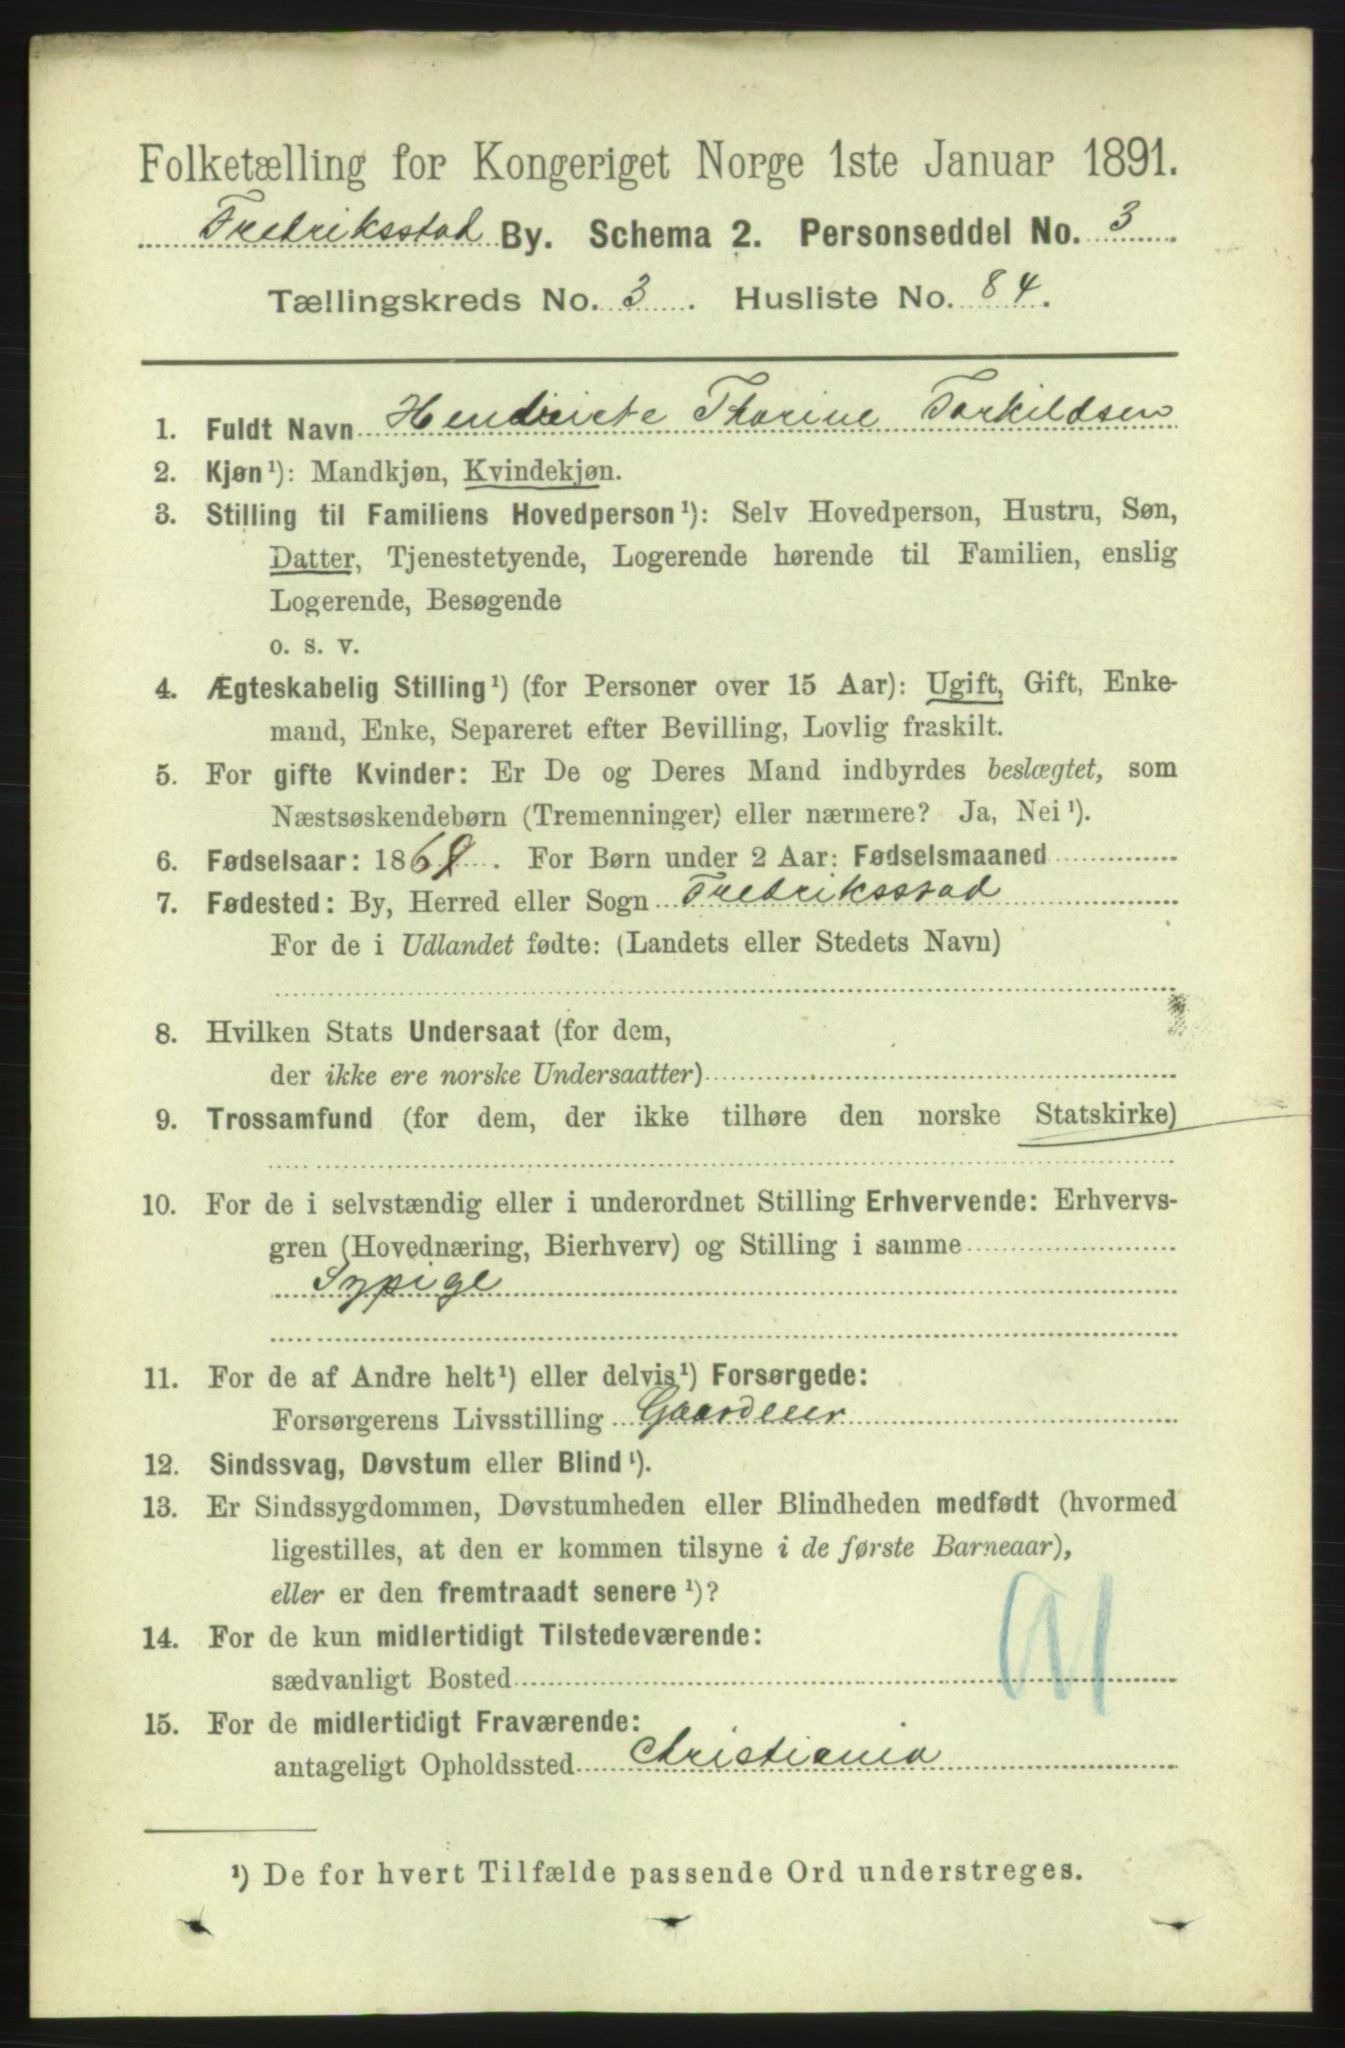 Folketælling for Kongeriget Norge 1ste Januar 1891.
Fredriksstad By. Schema 2. Personseddel No. 3
Tællingskreds No. 3. Husliste No. 84.
1. Fuldt Navn Hendriete Thorine Torkildsen
2. Kjøn¹): Mandkjøn, Kvindekjøn.
3. Stilling til Familiens Hovedperson¹): Selv Hovedperson, Hustru, Søn,
Datter, Tjenestetyende, Logerende hørende til Familien, enslig
Logerende, Besøgende
o. s. v.
4. Ægteskabelig Stilling¹) (for Personer over 15 Aar): Ugift, Gift, Enke-
mand, Enke, Separeret efter Bevilling, Lovlig fraskilt.
5. For gifte Kvinder: Er De og Deres Mand indbyrdes beslægtet, som
Næstsøskendebørn (Tremenninger) eller nærmere? Ja, Nei¹).
6. Fødselsaar: 1869. For Børn under 2 Aar: Fødselsmaaned
7. Fødested: By, Herred eller Sogn Fredriksstad
For de i Udlandet fødte: (Landets eller Stedets Navn)
8. Hvilken Stats Undersaat (for dem,
der ikke ere norske Undersaatter)
9. Trossamfund (for dem, der ikke tilhøre den norske Statskirke)
10. For de i selvstændig eller i underordnet Stilling Erhvervende: Erhvervs-
gren (Hovednæring, Bierhverv) og Stilling i samme
Sypige
11. For de af Andre helt¹) eller delvis¹) Forsørgede:
Forsørgerens Livsstilling Gaardeier
12. Sindssvag, Døvstum eller Blind¹).
13. Er Sindssygdommen, Døvstumheden eller Blindheden medfødt (hvormed
ligestilles, at den er kommen tilsyne i de første Barneaar),
eller er den fremtraadt senere¹)?
14. For de kun midlertidigt Tilstedeværende:
sædvanligt Bosted
15. For de midlertidigt Fraværende:
antageligt Opholdssted Christiania
¹) De for hvert Tilfælde passende Ord understreges.